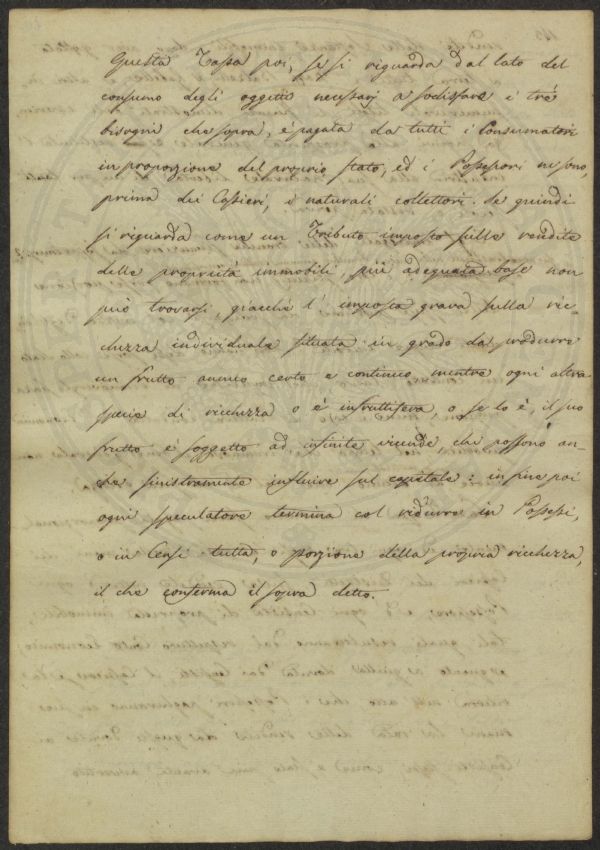 Questa Tassa poi, se si riguarda dal lato del
consumo degli oggetti necessarj a sodisfare i trè
bisogni che sopra, è pagata da tutti i Consumatori
in proporzione del proprio stato, ed i Possessori ne sono,
prima dei Cassieri, i naturali collettori. Se quindi
si riguarda come un Tributo imposto sulle rendite
delle proprietà immobili, più adequata base non
può trovarsi, giacchè l'imposta grava sulla ric-
chezza individuale situata in grado da produrre
un frutto annuo certo e continuo mentre ogni altra
specie di ricchezza o è infruttifera, o se lo è, il suo
frutto è soggetto ad infinite vicende, che possono an-
che sinistramente influire sul capitale: in fine poi
ogni speculatore termina col ridurre in Possessi,
o in Censi tutta, o porzione della propria ricchezza,
il che conferma il sopra detto.